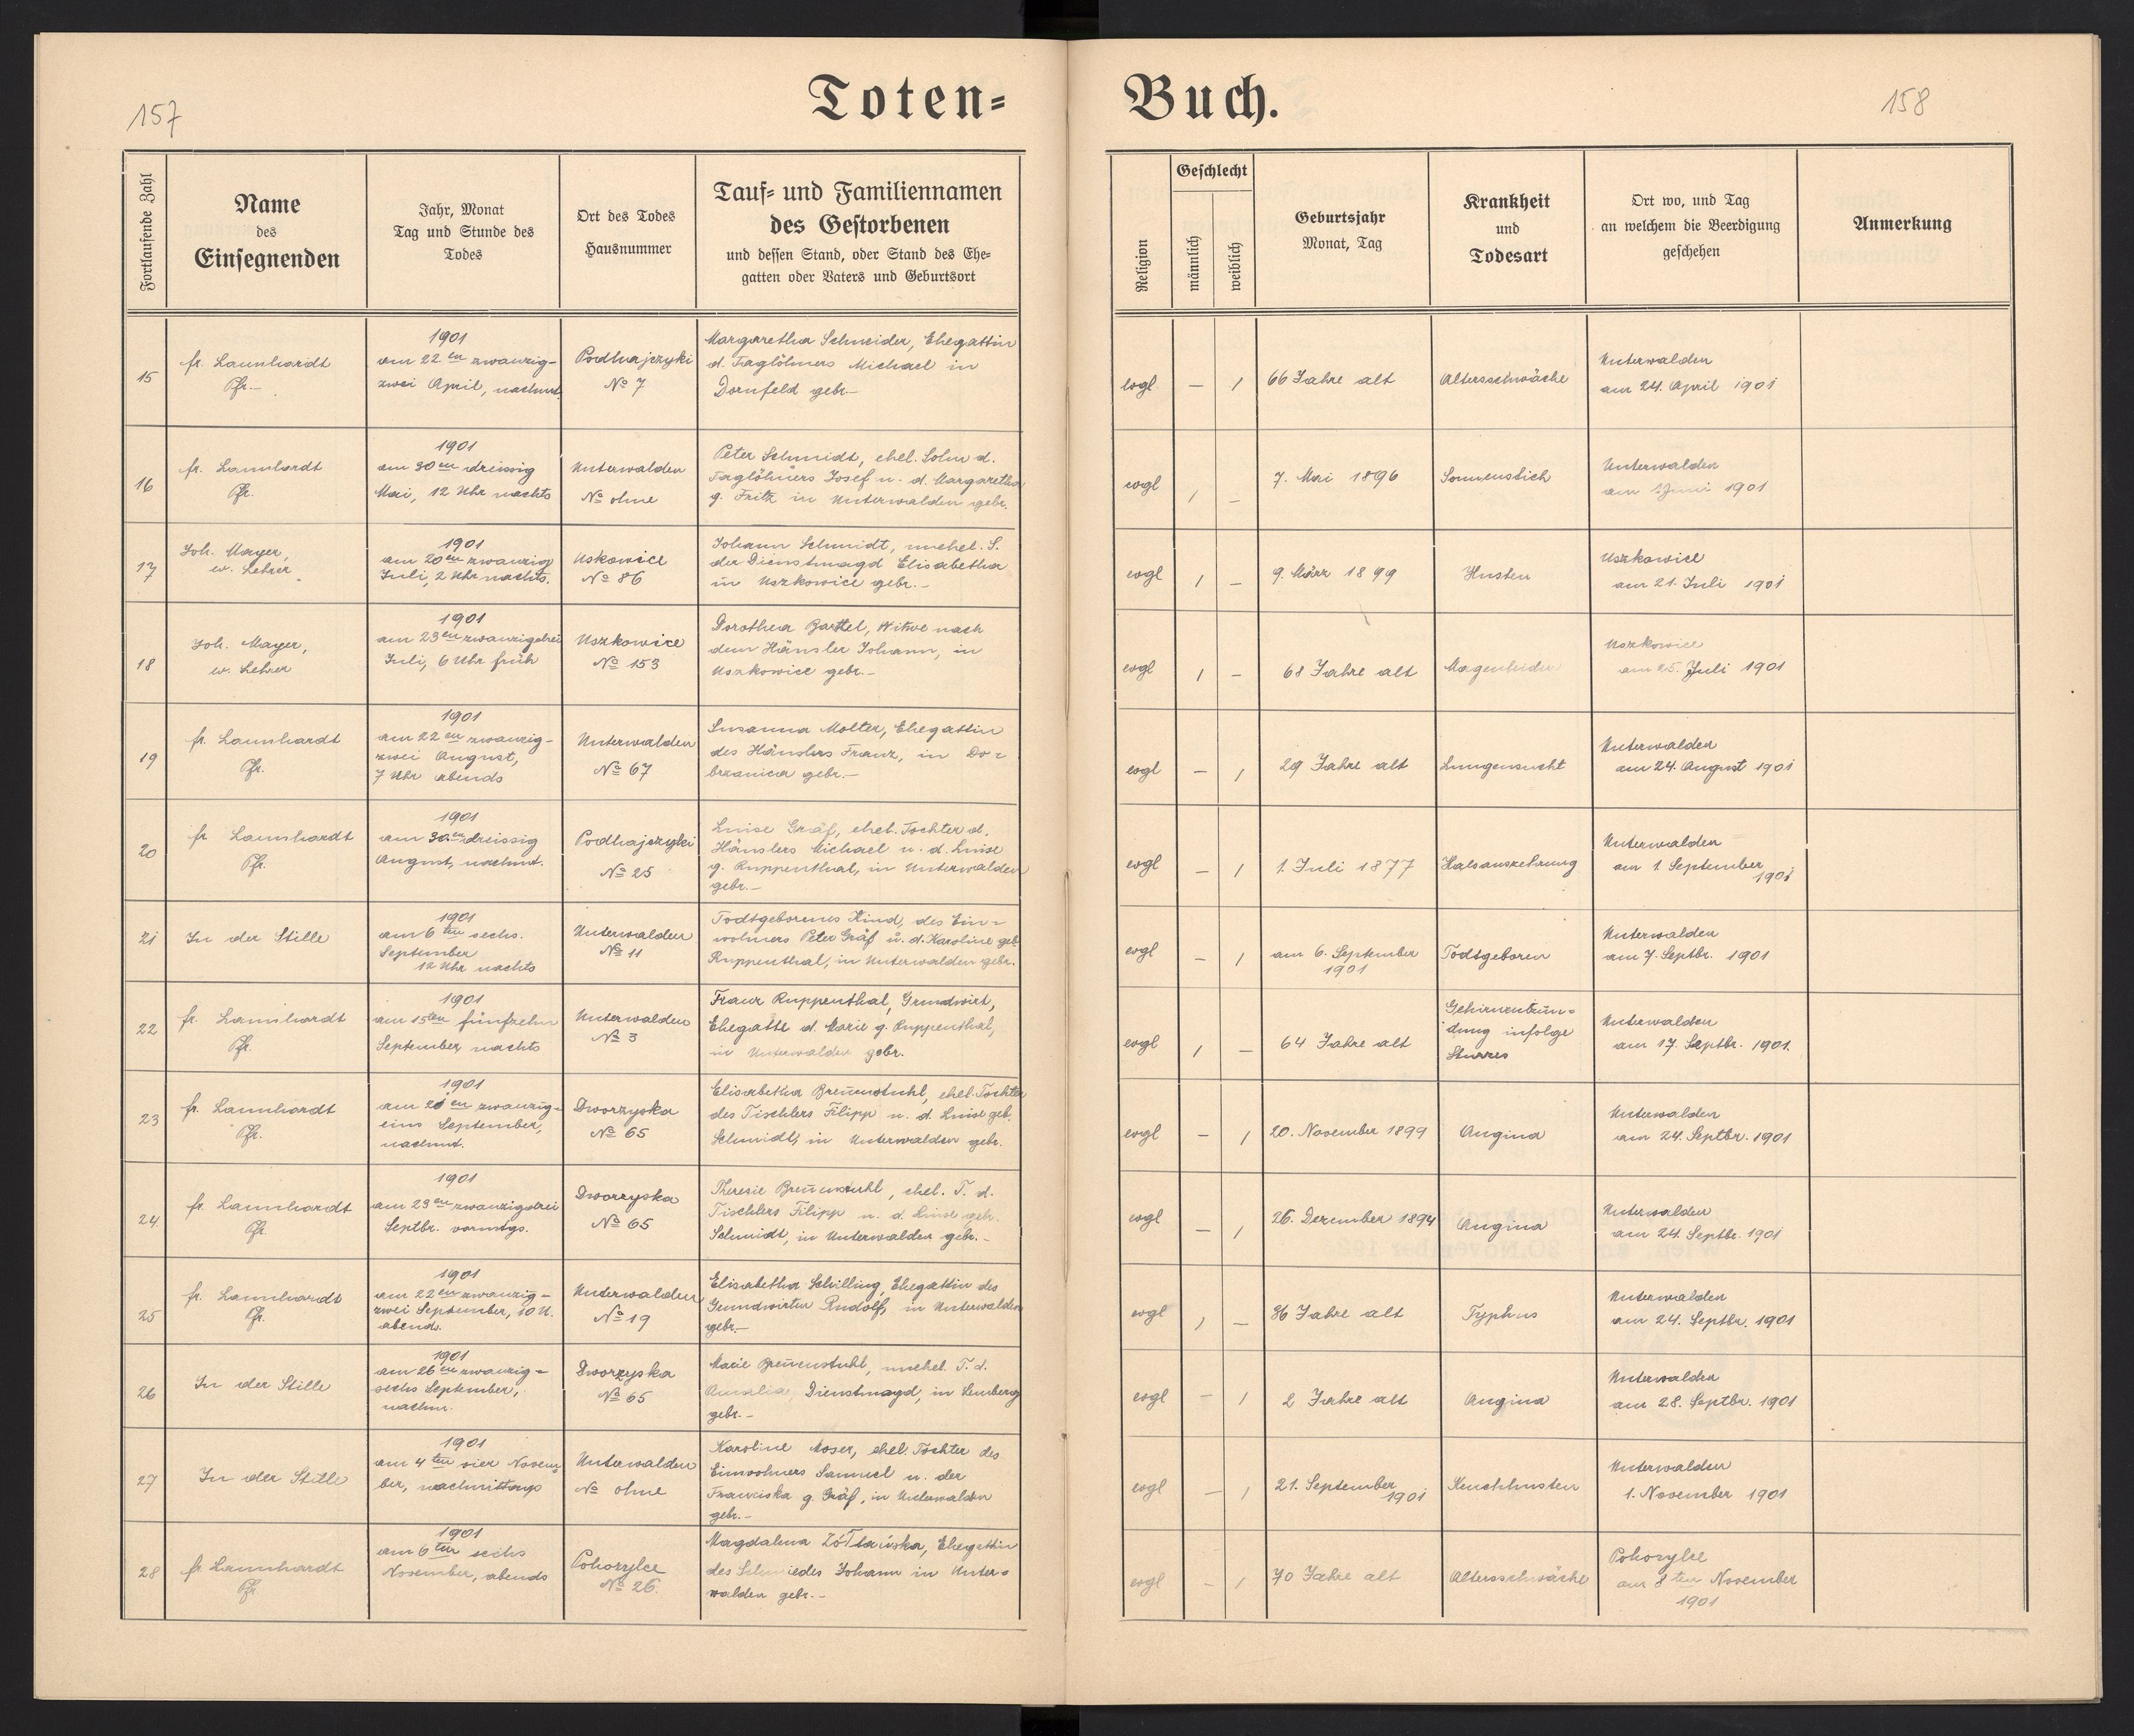 157
Toten=
Buch.
158
Fortlaufende Zahl
Name
des
Einsegnenden
Jahr, Monat
Tag und Stunde des
Todes
Ort des Todes
Hausnummer
Tauf= und Familiennamen
des Gestorbenen
und dessen Stand, oder Stand des Ehe=
gatten oder Vaters und Geburtsort
Religion
Geschlecht
männlich
weiblich
Geburtsjahr
Monat, Tag
Krankheit
und
Todesart
Ort wo, und Tag
an welchem die Beerdigung
geschehen
Anmerkung
15
fr. Launhardt
Pfr.-
1901
am 22en zwanzig-
zwei April, nachmt.
Podhajczyki
No 7
Margaretha Schneider, Ehegattin
d. Taglöhners Michael in
Dornfeld gebr.-
evgl
-
1
66 Jahre alt
Altersschwäche
Unterwalden
am 24. April 1901
16
fr. Launhardt
Pfr.
1901
am 30en dreissig
Mai, 12 Uhr nachts
Unterwalden
No ohne
Peter Schmidt, ehel. Sohn d.
Taglöhners Josef u. d. Margaretha
g. Fritz in Unterwalden gebr.
evgl
1
-
7. Mai 1896
Sonnenstich
Unterwalden
am 1 Juni 1901
17
Joh. Mayer,
ev. Lehrer
1901
am 20en zwanzig
Juli, 2 Uhr nachts.
Uskowice
No 86
Johann Schmidt, unehel. S.
der Dienstmagd Elisabetha
in Uszkowice gebr.-
evgl
1
-
9. März 1899
Husten
Uszkowice
am 21. Juli 1901
18
Joh. Mayer,
ev. Lehrer
1901
am 23en zwanzigdrei
Juli, 6 Uhr früh
Uszkowice
No 153
Dorothea Barttel, Witwe nach
dem Häusler Johann, in
Uszkowice gebr.-
evgl
1
-
68 Jahre alt
Magenleiden
Uszkowice
am 25. Juli 1901
19
fr. Launhardt
Pfr.
1901
am 22en zwanzig-
zwei August,
7 Uhr abends
Unterwalden
No 67
Susanna Molter, Ehegattin
des Häuslers Franz, in Do=
brzanica gebr.-
evgl
-
1
29 Jahre alt
Lungensucht
Unterwalden
am 24. August 1901
20
fr. Launhardt
Pfr.
1901
am 30.en dreissig
August, nachmt.
Podhajczyki
No 25
Luise Gräf, ehel. Tochter d.
Häuslers Michael u. d. Luise
g. Ruppenthal, in Unterwalden
gebr.-
evgl
-
1
1. Juli 1877
Halsauszehrung
Unterwalden
am 1. September
1901
21
In der Stille
1901
am 6ten sechs.
September
12 Uhr nachts
Unterwalden
No 11
Todtgeborenes Kind, des Ein=
wohners Peter Gräf u. d. Karoline geb.
Ruppenthal, in Unterwalden gebr.
evgl
-
1
am 6. September
1901
Todtgeboren
Unterwalden
am 7. Septbr. 1901
22
fr. Launhardt
Pfr.
1901
am 15ten fünfzehn
September, nachts
Unterwalden
No 3
Franz Ruppenthal, Grundwirt,
Ehegatte d. Marie g. Ruppenthal,
in Unterwalden gebr.
evgl
1
-
64 Jahre alt
Gehirnentzün=
dung infolge
Sturzes
Unterwalden
am 17. Septbr. 1901.
23
fr. Launhardt
Pfr.
1901
am 21en zwanzig-
eins September,
nachmt.
Dworzyska
No 65
Elisabetha Breuenstuhl, ehel. Tochter
des Tischlers Filipp u. d. Luise geb.
Schmidt, in Unterwalden gebr.
evgl
-
1
20. November 1899
Angina
Unterwalden
am 24. Septbr. 1901
24
fr. Launhardt
Pfr.
1901
am 23en zwanzigdrei
Septbr. vormtgs.
Dworzyska
No 65
Theresie Breuenstuhl, ehel. T. d.
Tischlers Filipp u. d. Luise gebr.
Schmidt, in Unterwalden gebr.-
evgl
-
1
26. Dezember 1894
Angina
Unterwalden
am 24. Septbr. 1901
25
fr. Launhardt
Pfr.
1901
am 22en zwanzig-
zwei September, 10 U.
abend.
Unterwalden
No 19
Elisabetha Schilling, Ehegattin des
Grundwirten Rudolf, in Unterwalden
gebr.-
evgl
1
-
36 Jahre alt
Typhus
Unterwalden
am 24. Septbr. 1901
26
In der Stille
1901
am 26en zwanzig-
sechs September,
nachm.
Dworzyska
No 65
Marie Breuenstuhl, unehel. T. d.
Amalia, Dienstmagd, in Lemberg
gebr.-
evgl
-
1
2 Jahre alt
Angina
Unterwalden
am 28. Septbr. 1901
27
In der Stille
1901
am 4ten vier Novem=
ber, nachmittags
Unterwalden
No ohne
Karoline Moser, ehel. Tochter des
Einwohners Samuel u. der
Franziska g. Gräf, in Unterwalden
gebr.-
evgl
-
1
21. September
1901
Keuchhusten
Unterwalden
1. November 1901
28
fr Launhardt
Pfr.
1901
am 6ten sechs
November, abends
Pohorylce
No 26.
Magdalena Ehegattin
des Schmiedes Johann in Unter=
walden gebr.-
evgl
-
1
70 Jahre alt
Altersschwäche
Pohorylce
am 8ten November
1901